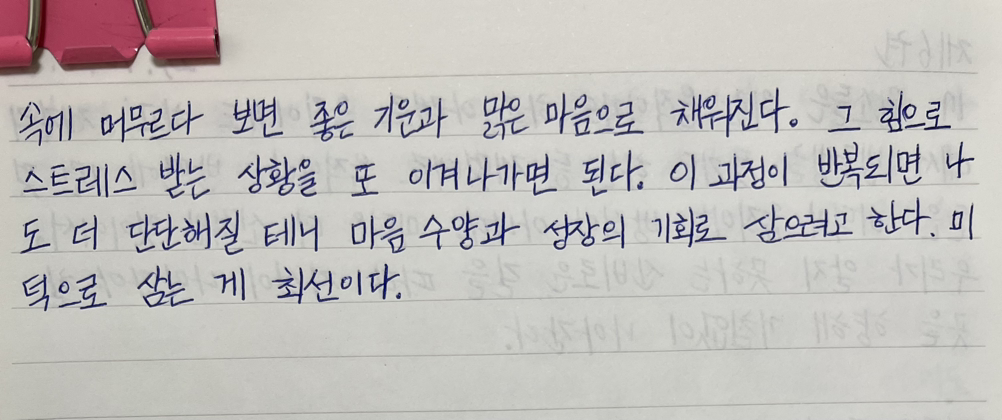 속에 머무르다 보면 좋은 기운과 맑은 마음으로 채워진다. 그 힘으로
스트레스 받는 상황을 또 이겨나가면 된다. 이 과정이 반복되면 나
도 더 단단해질 테니 마음 수양과 성장의 기회로 삼으려고 한다. 미
덕으로 삼는 게 최선이다.